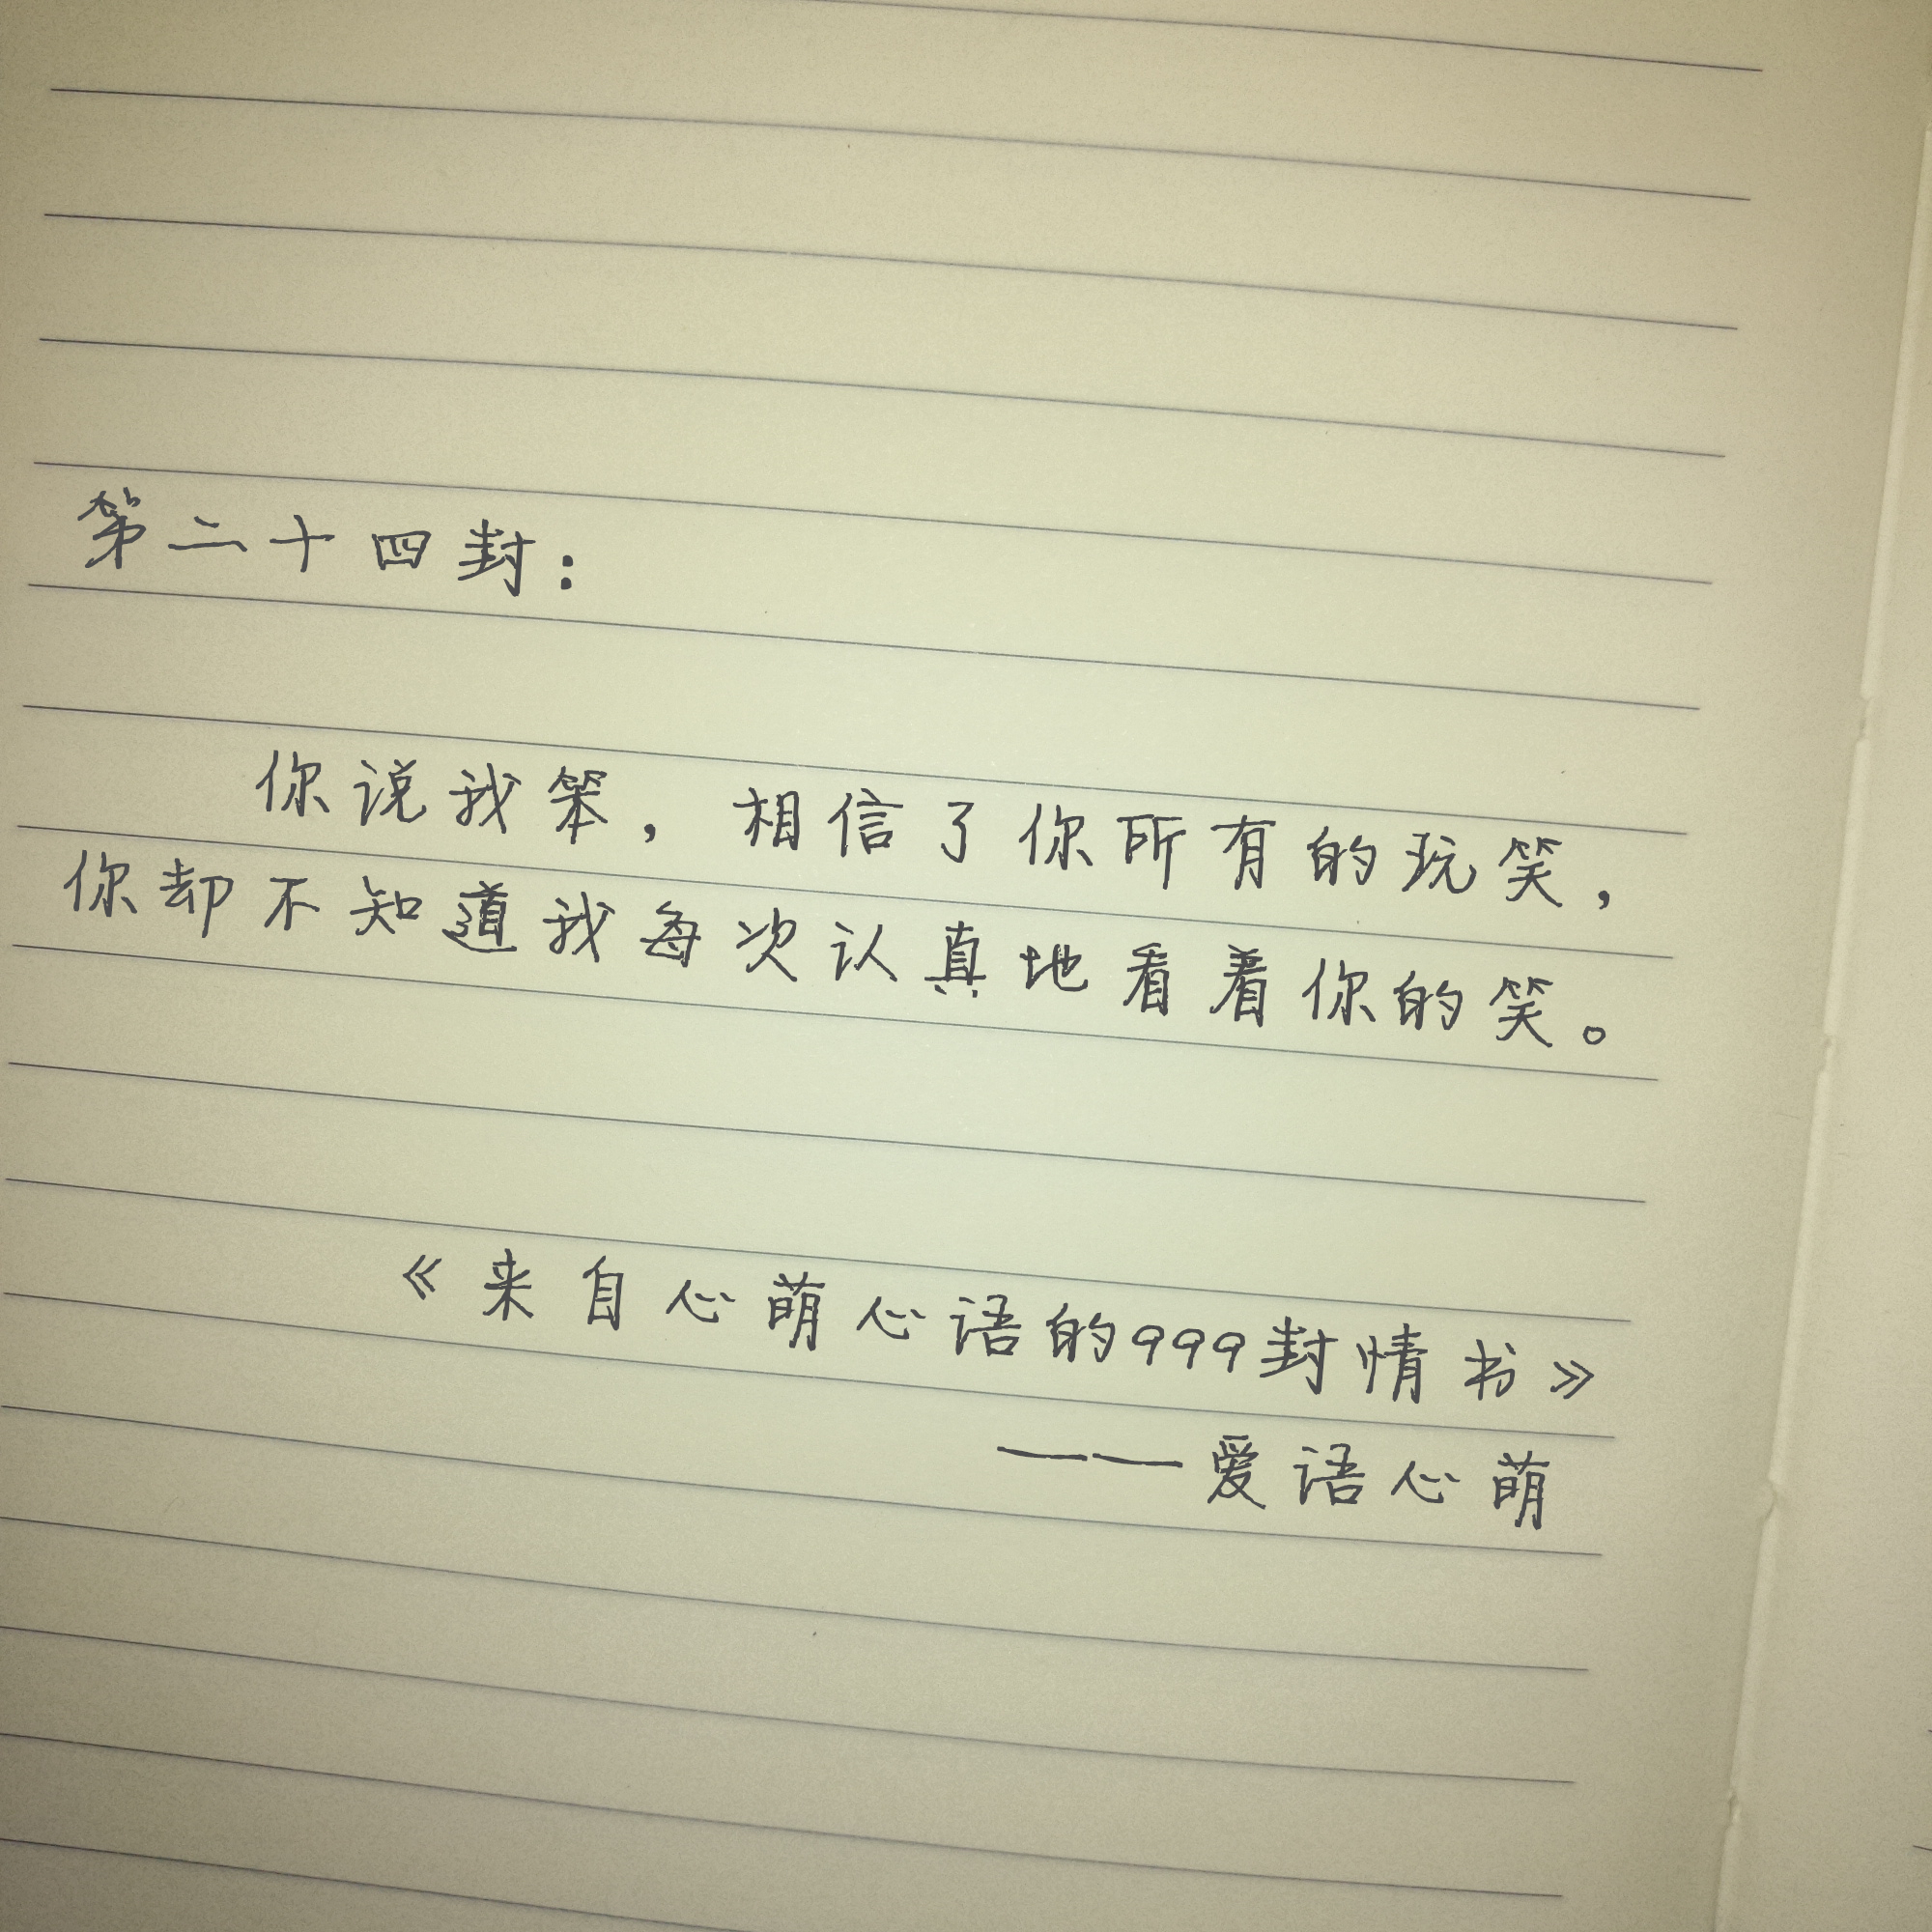 第二十四封：
你说我笨，相信了你所有的玩笑，
你却不知道我每次认真地看着你的笑。
《来自心萌心语的999封情书》
——爱语心萌